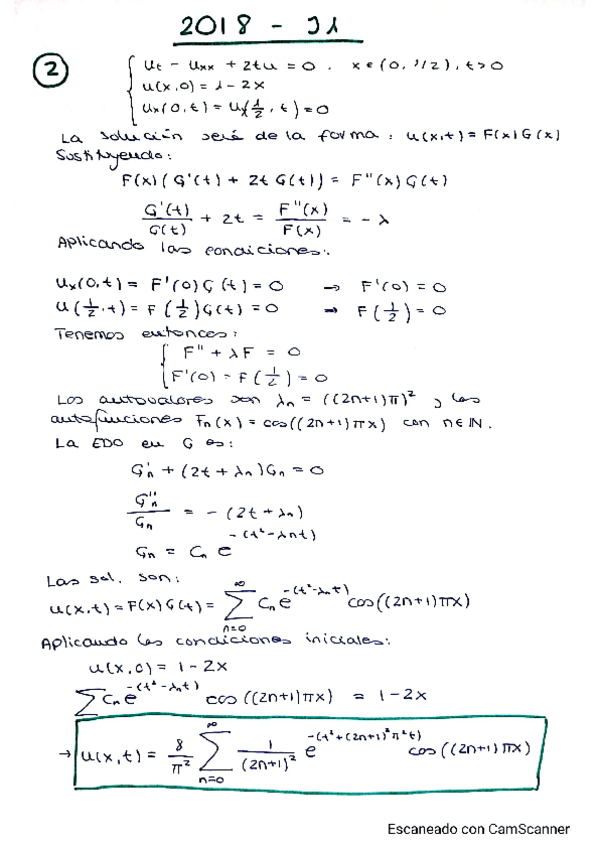 2018 - J1
2
{ ut - uxx + 2tu = 0 , x ∈ (0, 1/2), t > 0
u(x,0) = 1 - 2x
ux(0,t) = u(1/2, t) = 0
La solución será de la forma : u(x,t) = F(x) G(x)
Sustituyendo:
F(x) (G'(t) + 2t G(t)) = F''(x) G(t)
G'(t)/G(t) + 2t = F''(x)/F(x) = -λ
Aplicando las condiciones:
ux(0,t) = F'(0) G(t) = 0 → F'(0) = 0
u(1/2, t) = F(1/2) G(t) = 0 → F(1/2) = 0
Tenemos entonces:
{ F'' + λF = 0
F'(0) = F(1/2) = 0
Los autovalores son λn = ((2n+1)π)², y las
autofunciones Fn(x) = cos((2n+1)πx) con n ∈ ℕ.
La EDO en G es:
G'n + (2t + λn) Gn = 0
G'n/Gn = -(2t + λn)
Gn = Cn e^-(t² - λnt)
Las sol. son:
u(x,t) = F(x) G(t) = ∑_{n=0}^{∞} Cn e^-(t² - λnt) cos((2n+1)πx)
Aplicando las condiciones iniciales:
u(x,0) = 1 - 2x
∑ Cn e^-(t² - λnt) cos((2n+1)πx) = 1 - 2x
→ u(x,t) = 8/π² ∑_{n=0}^{∞} 1/(2n+1)² e^-(t² + (2n+1)²π²t) cos((2n+1)πx)
Escaneado con CamScanner